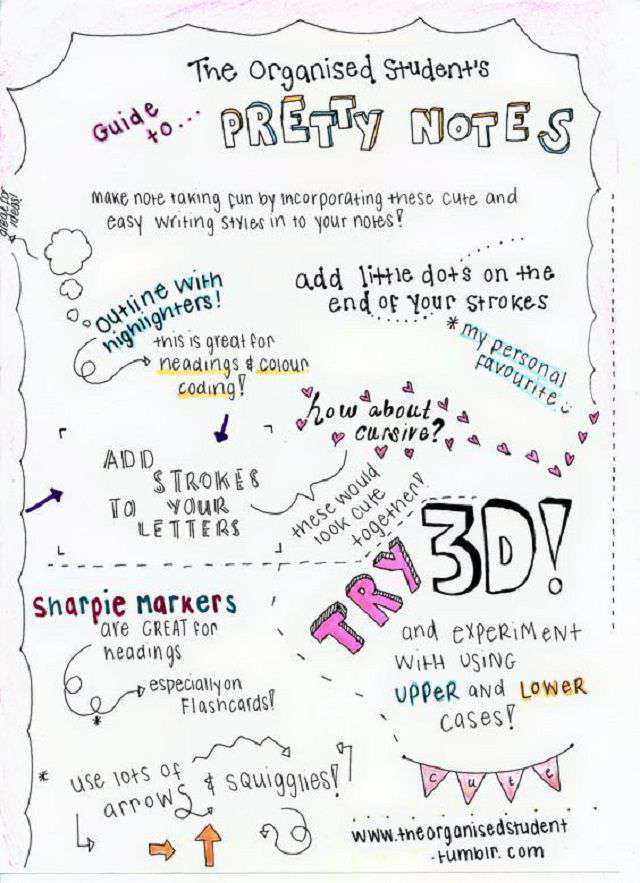 The Organised Student's
Guide to...
PRETTY NOTES
make note taking fun by incorporating these cute and
easy writing styles in to your notes!
great for
ideas!
outline with
highlighters!
this is great for
headings & colour
coding!
add little dots on the
end of your strokes
* my personal
favourite
how about
cursive?
ADD
STROKES
TO YOUR
LETTERS
these would
look cute
together!
TRY
3D!
and EXPERIMENT
WITH USING
UPPER and LOWER
CASES!
Sharpie Markers
are GREAT for
headings
*
especially on
Flashcards!
* use lots of
arrows & squigglies!
cute
www.theorganisedstudent
.tumblr.com